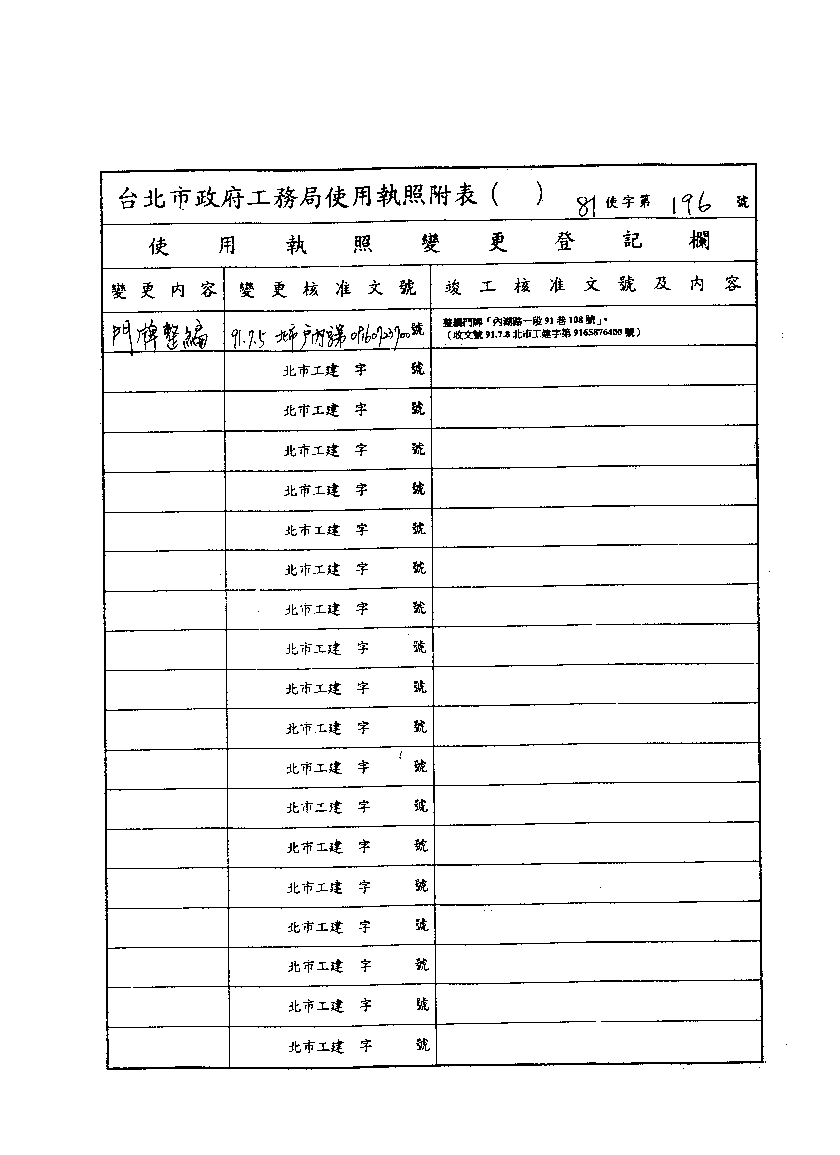 台北市政府工務局使用執照附表（　） 81使字第 196 號
使用執照變更登記欄
變更內容 變更核准文號 竣工核准文號及內容
門牌整編 91.7.5 北市 號 整編門牌「內湖路一段91巷108號」。
（收文號91.7.8北市工建字第9165876400號）
北市工建 字 號
北市工建 字 號
北市工建 字 號
北市工建 字 號
北市工建 字 號
北市工建 字 號
北市工建 字 號
北市工建 字 號
北市工建 字 號
北市工建 字 號
北市工建 字 號
北市工建 字 號
北市工建 字 號
北市工建 字 號
北市工建 字 號
北市工建 字 號
北市工建 字 號
北市工建 字 號